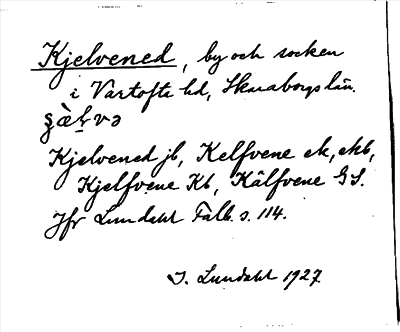 Kjelvened, by och socken
i Vartofta hd, Skaraborgs län.
Kjelvened jb, Kelfvene ek, ekb,
Kjelfvene Kb, Källfvene GS.
Jfr Lundahl Falb. s. 114.
I. Lundahl 1927.